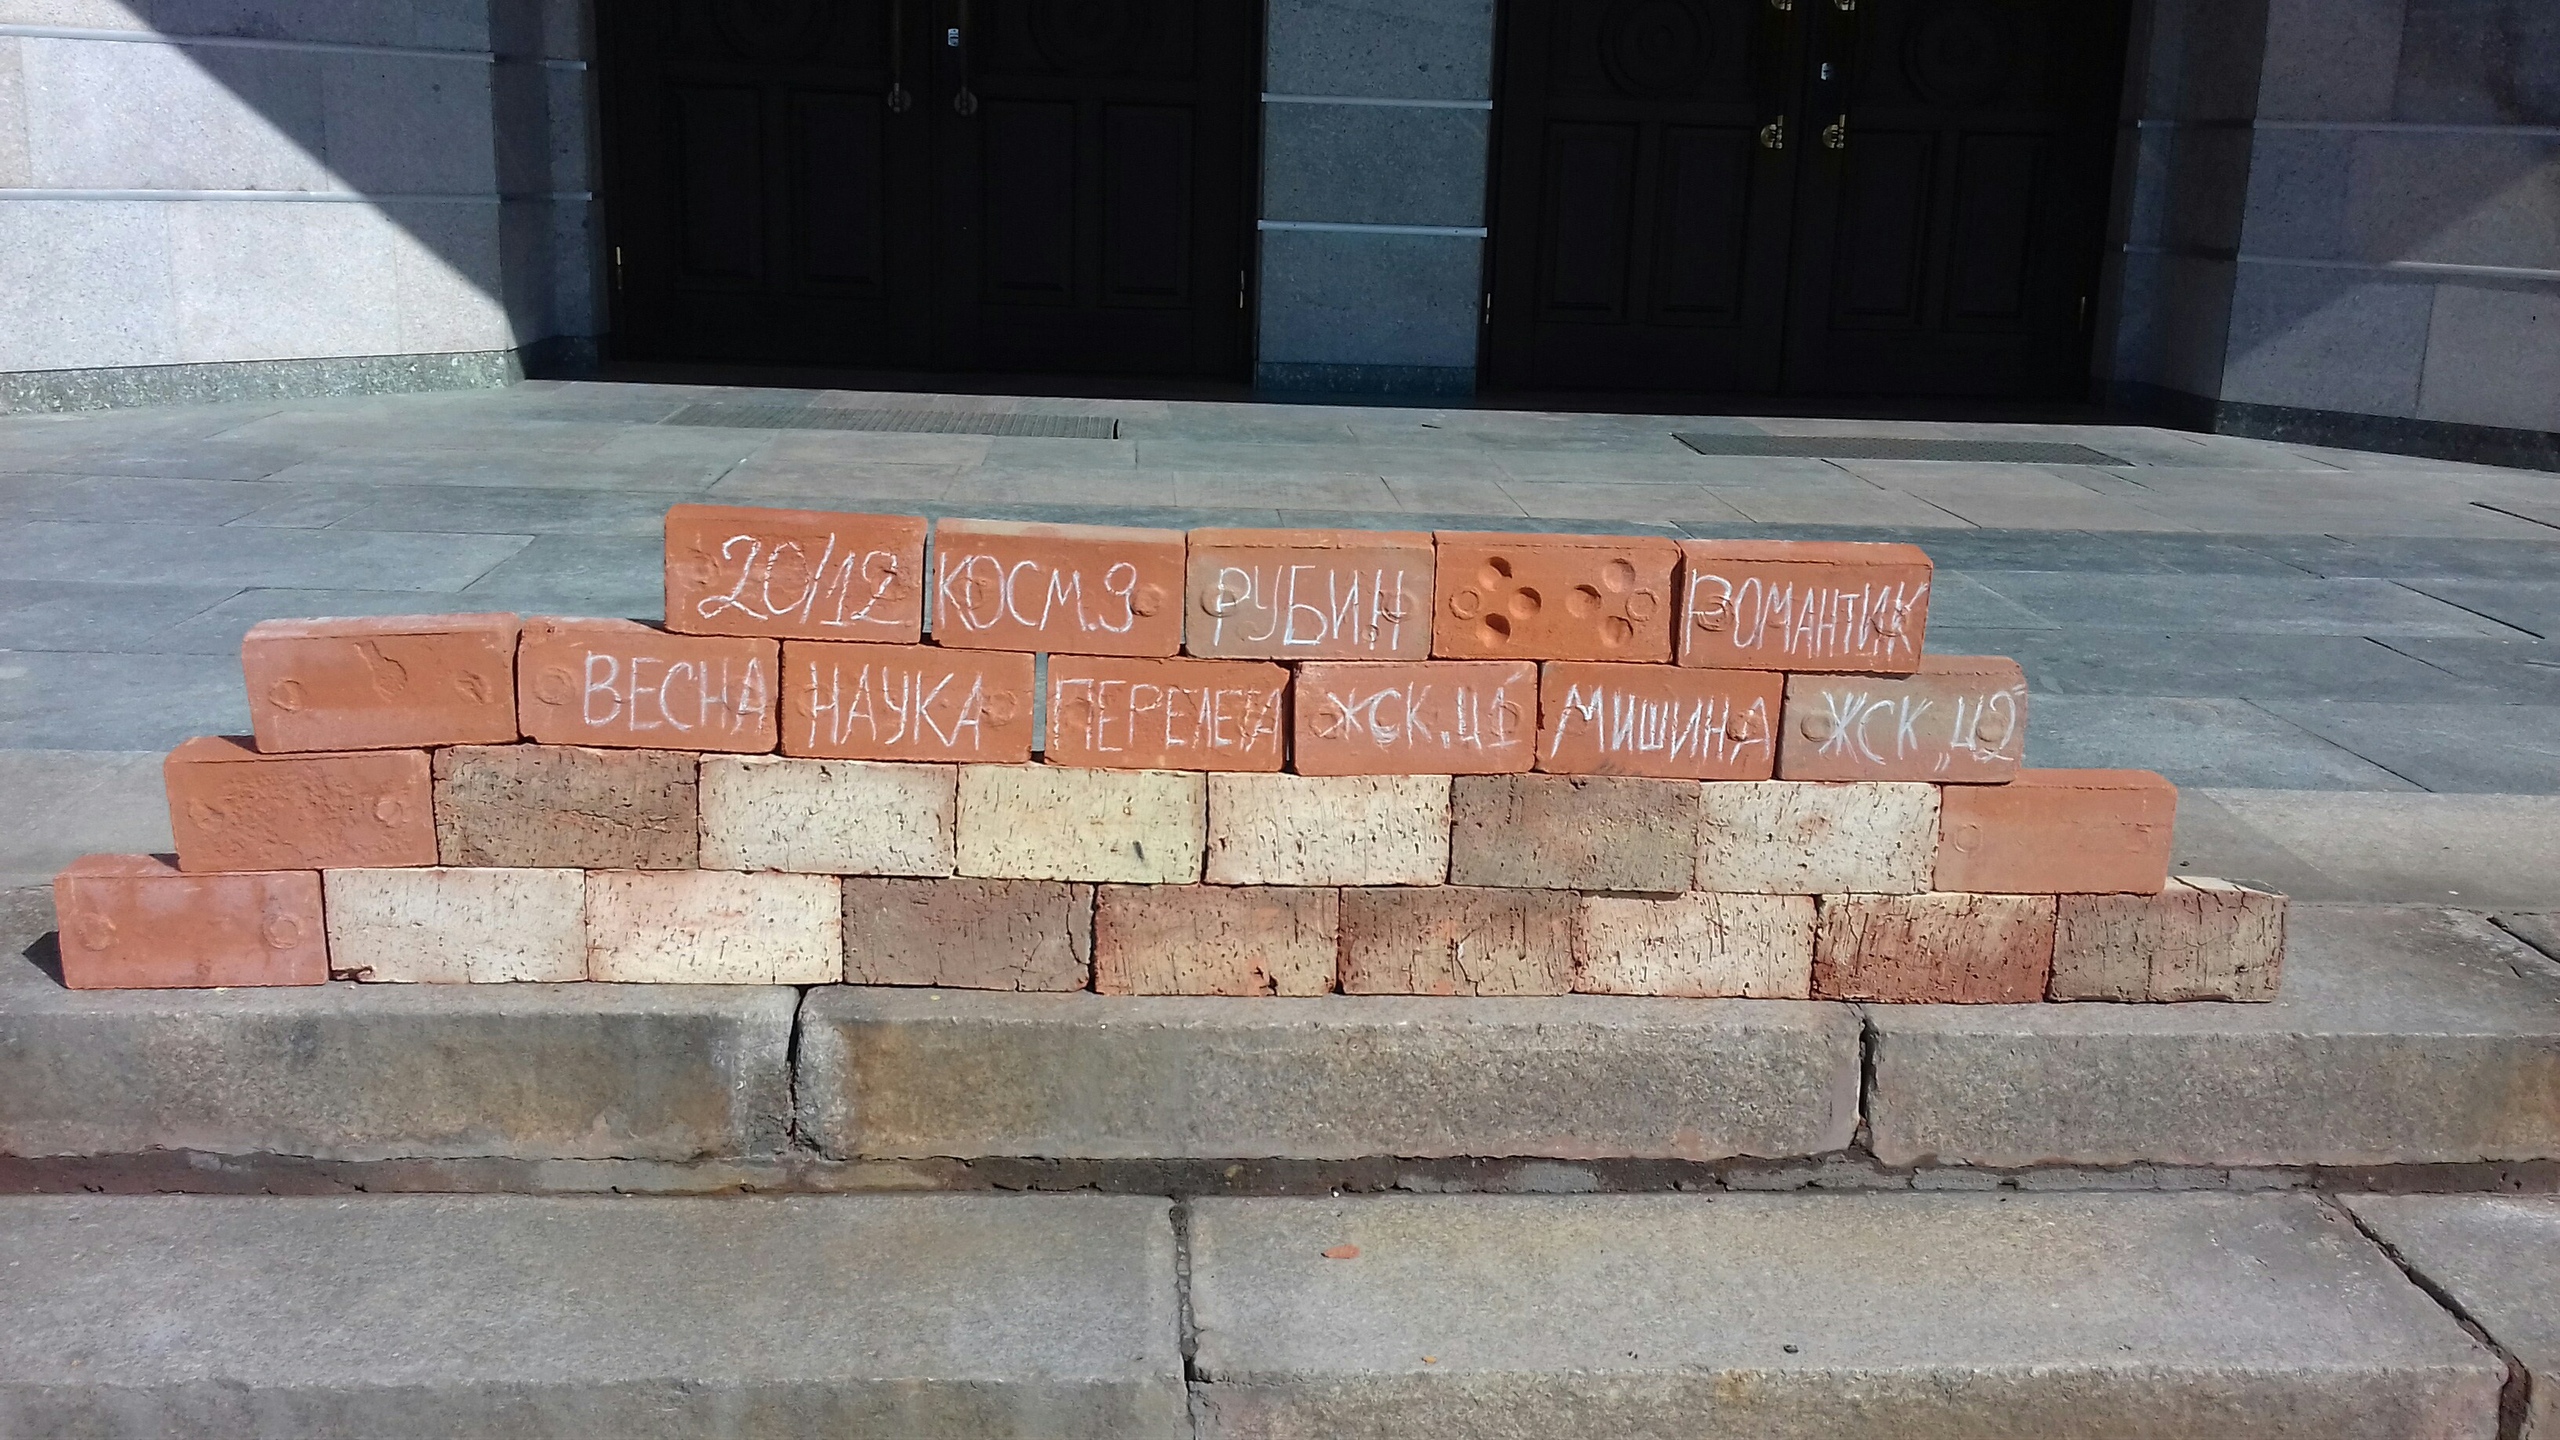 20/12 КОСМ.9 РУБИН РОМАНТИК
ВЕСНА НАУКА ПЕРЕЛЕТА ЖСК,Ц1 МИШИНА ЖСК,Ц2